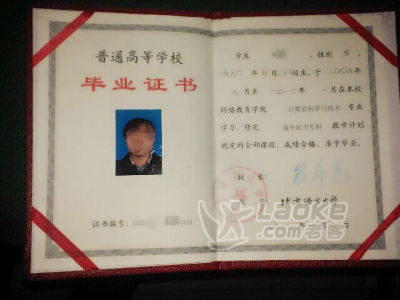 普通高等学校
毕业证书
证书编号:
学生 ,性别 男 ,
一九九二年 九月二十日生,于二〇〇九年
九月至二〇一二年 一月在本校
网络教育学院 计算机科学与技术 专业
学习,修完 高中起点专科 教学计划
规定的全部课程,成绩合格,准予毕业。
校 长:
Laoke
.com老客